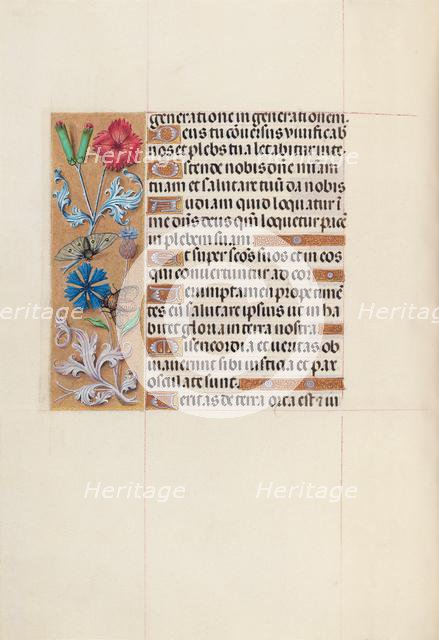 generatione in generationem.
Deus tu cōversus vivificab
nos et plebs tua letabitur in te.
Ostende nobis dn̄e miam
tuam et salutare tuū da nobis
Audiam quid loquatur ī
me dn̄s deus qm̄ loquetur pacē
in plebem suam.
Et super sc̄os suos et in eos
qui convertuntur ad cor.
Verumptamen prope timē
tes eū salutare ipsius ut in ha
bitet gloria in terra nostra.
Misericordia et veritas ob
viaverunt sibi iusticia et pax
osculate sunt.
Veritas de terra orta est et iu
Heritage
Heritage
Heritage
Heritage
Heritage
Heritage
Heritage